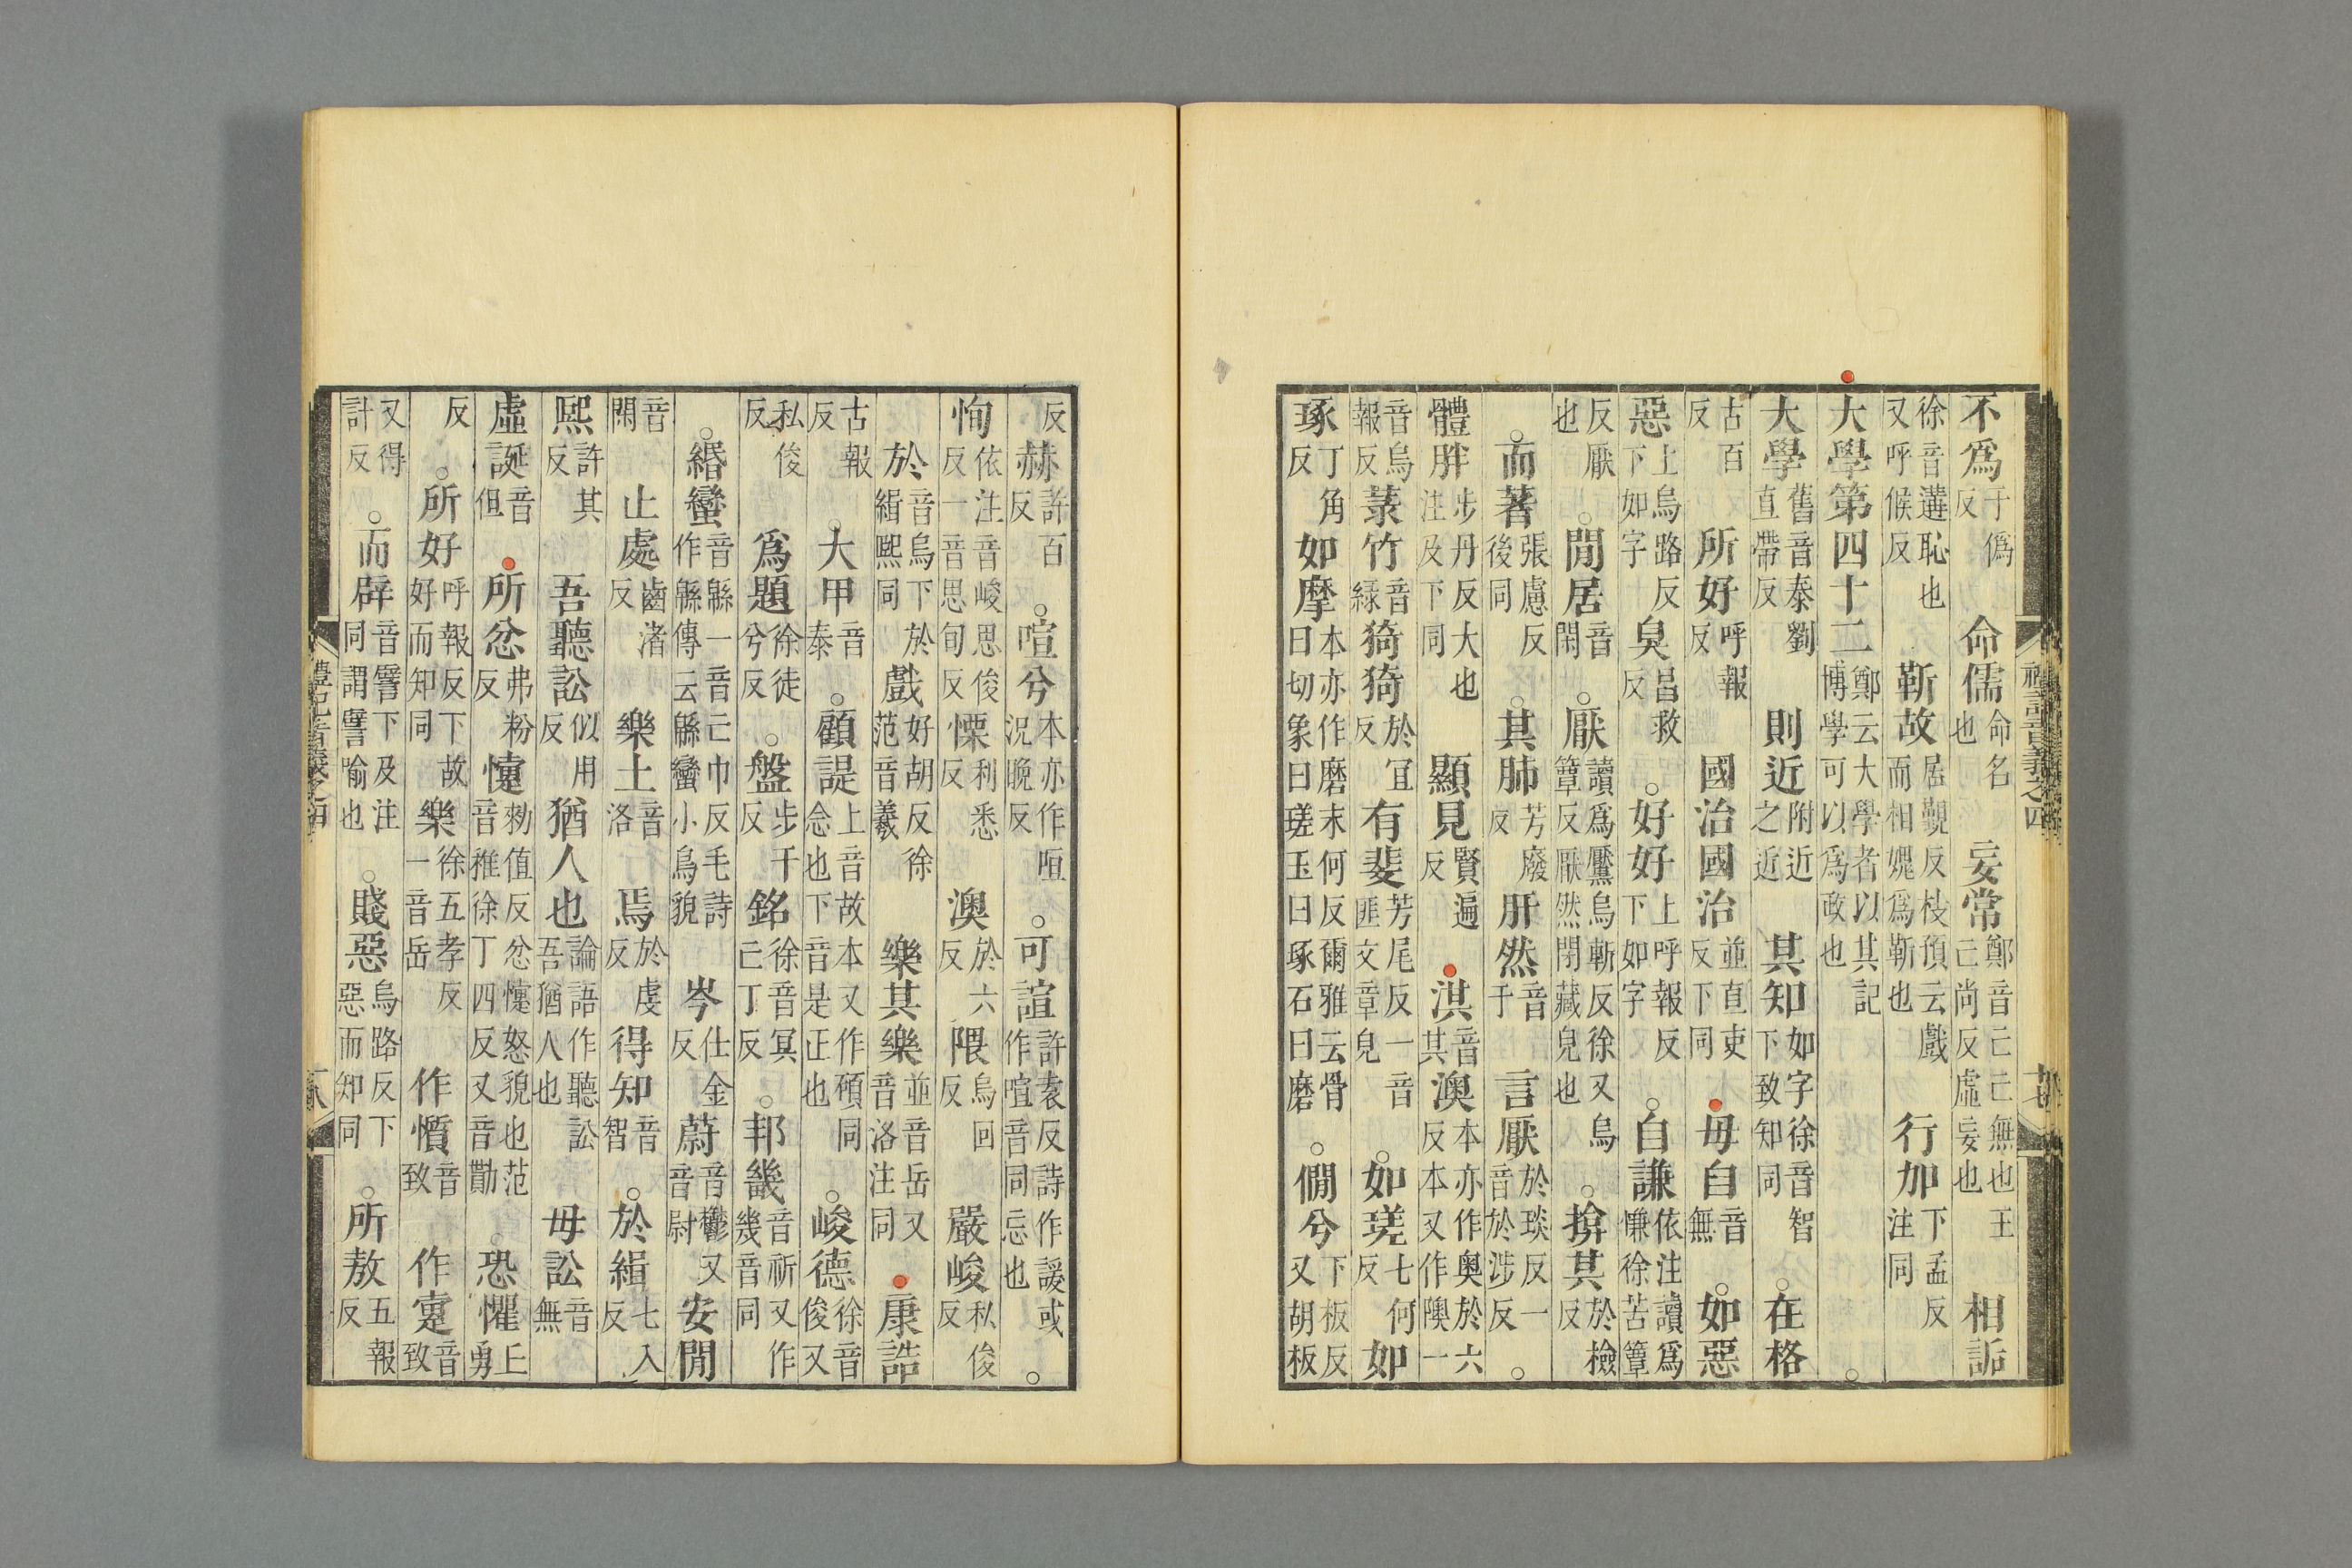 禮記音義之四
不爲于偽反命儒命名也妄常鄭音亡亡無也王亡尚反虛妄也相詬
徐音遘恥也又呼候反靳故居覲反杜預云戲而相媿爲靳也行加下孟反注同
大學第四十二鄭云大學者以其記博學可以爲政也○
大學舊音泰劉直帶反則近附近之近其知如字徐音智下致知同○在格
古百反所好呼報反國治國治並直吏反下同毋自音無○如惡
惡上烏路反下如字臭昌救反○好好上呼報反下如字○自謙依注讀爲慊徐苦簟
反厭也○閒居音閑○厭讀爲黶烏斬反徐又烏簟反厭然閉藏皃也○揜其於檢反
○而著張慮反後同○其肺芳廢反肝然音干言厭於琰反一音於涉反○
體胖步丹反大也注及下同顯見賢遍反淇音其澳本亦作奧於六反本又作隩一
音烏報反菉竹音緑猗猗於宜反有斐芳尾反一音匪文章皃○如瑳七何反如
琢丁角反如摩本亦作磨末何反爾雅云骨曰切象曰瑳玉曰琢石曰磨○僩兮下板反又胡板
反赫許百反○喧兮本亦作咺況晚反○可諠許袁反詩作諼或作喧音同忘也○
恂依注音峻思俊反一音思旬反慄利悉反澳於六反隈烏回反嚴峻私俊反
於音烏下於緝熙同戲好胡反徐范音羲樂其樂並音岳又音洛注同康誥
古報反○大甲音泰○顧諟上音故本又作頋同念也下音是正也○峻德徐音俊又
私俊反爲題徐徒兮反○盤步干反銘徐音冥亡丁反○邦畿音祈又作幾音同
○緡蠻音緜一音亡巾反毛詩作緜傳云緜蠻小鳥貌岑仕金反蔚音鬱又音尉安閒
音閑止處齒渚反樂土音洛焉於虔反得知音智○於緝七入反
熙許其反吾聽訟似用反猶人也論語作聽訟吾猶人也毋訟音無
虛誕音但所忿弗粉反懥勑值反忿懥怒貌也范音稚徐丁四反又音勣○恐懼上勇
反○所好呼報反下故好而知同樂徐五孝反一音岳作懫音致作疐音致
又得計反○而辟音譬下及注同謂譬喻也○賤惡烏路反下惡而知同○所敖五報反